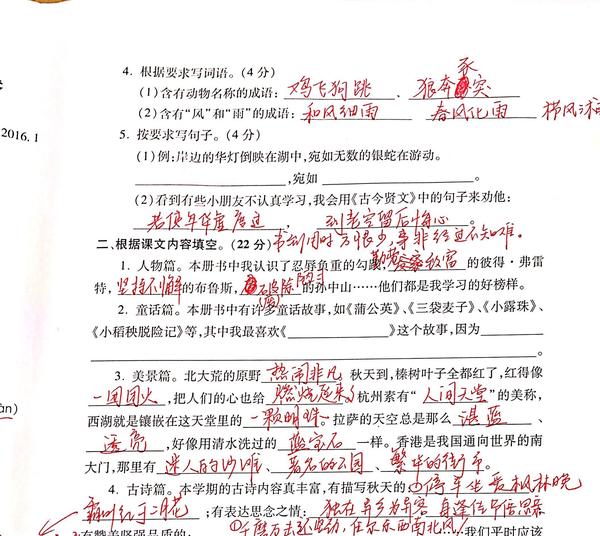 2016.1
4. 根据要求写词语。(4 分)
豕
(1)含有动物名称的成语: 鸡飞狗跳 、 狼奔 突
(2)含有“风”和“雨”的成语: 和风细雨 春风化雨 栉风沐雨
5. 按要求写句子。(4 分)
(1)例:岸边的华灯倒映在湖中,宛如无数的银蛇在游动。
,宛如 。
(2)看到有些小朋友不认真学习,我会用《古今贤文》中的句子来劝他:
若使年华虚度过 , 到老空留后悔心 。
书到用时方恨少,事非经过不知难。
二、根据课文内容填空。(22 分)
勤于
1. 人物篇。本册书中我认识了忍辱负重的勾践、 的彼得·弗雷
特, 坚持不懈 的布鲁斯, 破除 的孙中山……他们都是我学习的好榜样。
2. 童话篇。本册书中有许多童话故事,如《蒲公英》、《三袋麦子》、《小露珠》、
《小稻秧脱险记》等,其中我最喜欢《 》这个故事,因为
。
3. 美景篇。北大荒的原野 热闹非凡 。秋天到,榛树叶子全都红了,红得像
一团团火 ,把人们的心也给 燃烧起来了 杭州素有“ 人间天堂 ”的美称,
西湖就是镶嵌在这天堂里的 一颗明珠 。拉萨的天空总是那么 湛蓝 、
透亮 ,好像用清水洗过的 蓝宝石 一样。香港是我国通向世界的南
大门,那里有 迷人的沙滩 、 著名的公园 、 繁华的街市 。
àn)
4. 古诗篇。本学期的古诗内容真丰富,有描写秋天的 ①停车坐爱枫林晚
霜叶红于二月花 ;有表达思念之情: 独在异乡为异客 每逢佳节倍思亲
有赞美坚强品质的: ①千磨万击还坚劲,任尔东西南北风! ……我们平时应该